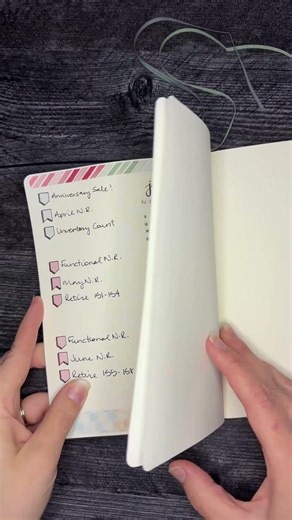 Anniversary Sale!
April N.R.
Inventory Count
Functional N.R.
May N.R.
Retire 151-154
Functional N.R.
June N.R.
Retire 155-158
j